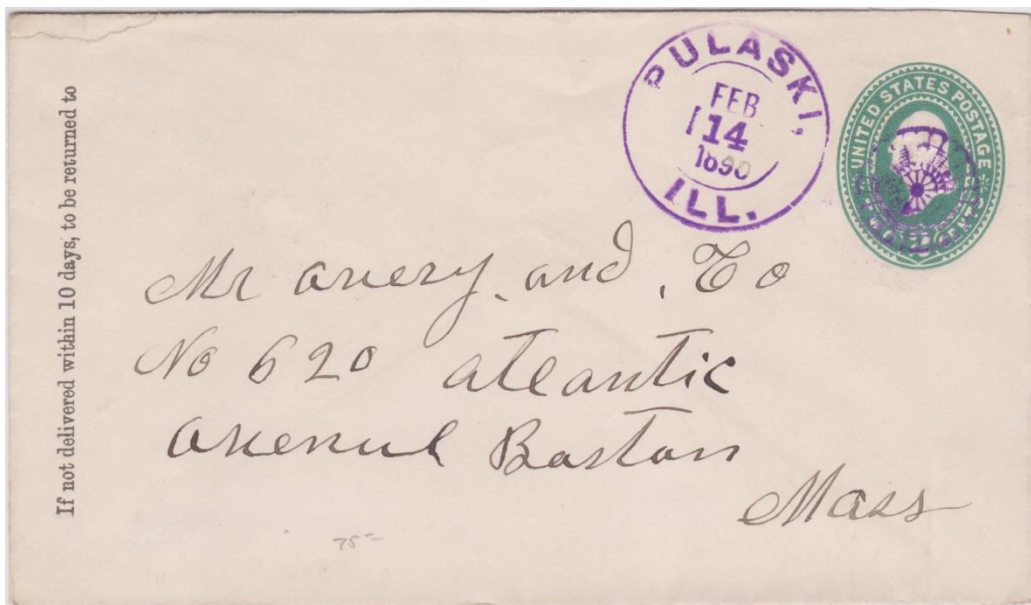 If not delivered within 10 days, to be returned to
PULASKI,
FEB
14
ILL.
UNITED STATES POSTAGE
TWO CENTS
Mr avery and Co
No 620 atlantic
avenue Boston
Mass
75-